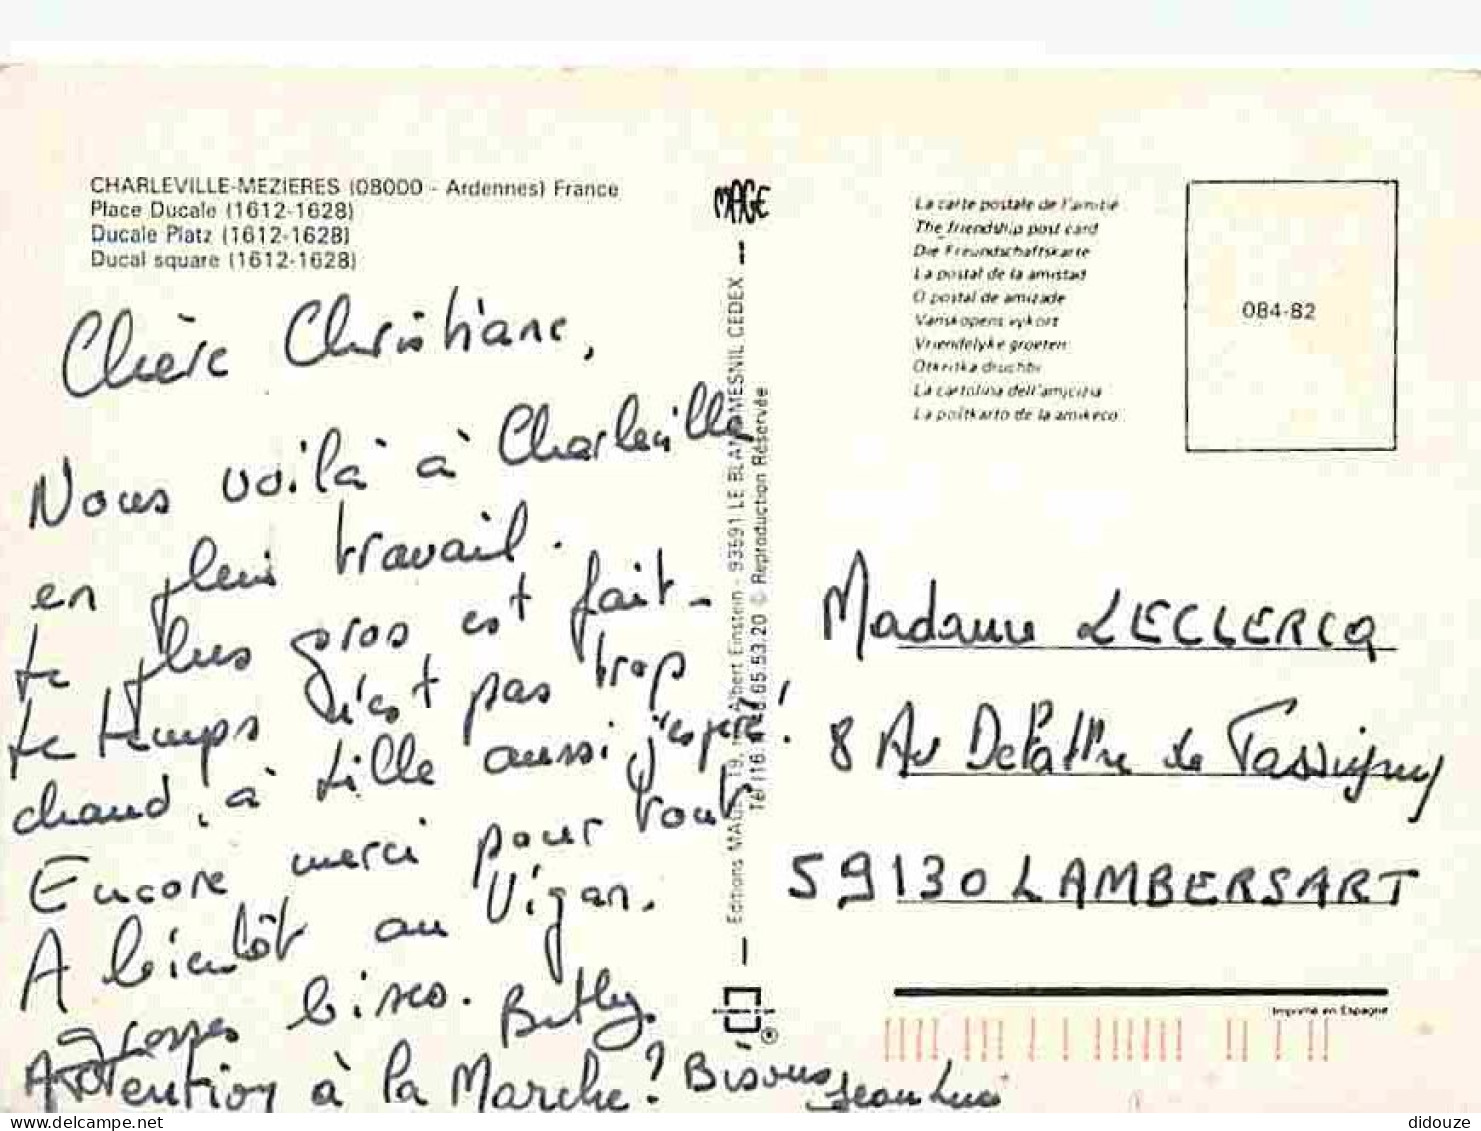 CHARLEVILLE-MEZIERES (08000 - Ardennes) France
Place Ducale (1612-1628)
Ducale Platz (1612-1628)
Ducal square (1612-1628)
Chère Christiane,
Nous voilà à Charleville
en plein travail.
Le plus gros est fait.
Le temps n'est pas trop
chaud, à Lille aussi j'espère!
Encore merci pour tout
A bientôt au Vigan.
grosses bises. Betty.
Attention à la Marche! Bisous Jean Luc
MAGE
Editions MAGE 19, Albert Einstein - 93591 LE BLANC MESNIL CEDEX
Tél (16 65.53.20 © Reproduction Réservée
La carte postale de l'amitié
The friendship post card
Die Freundschaftskarte
La postal de la amistad
O postal de amizade
Vanskapens vykort
Vriendelyke groeten
Otkritka druchbi
La cartolina dell'amicizia
La poŝtkarto de la amikeco
084-82
Madame LECLERCQ
8 Av De Lattre de Tassigny
59130 LAMBERSART
Imprimé en Espagne
delcampe.net
didouze